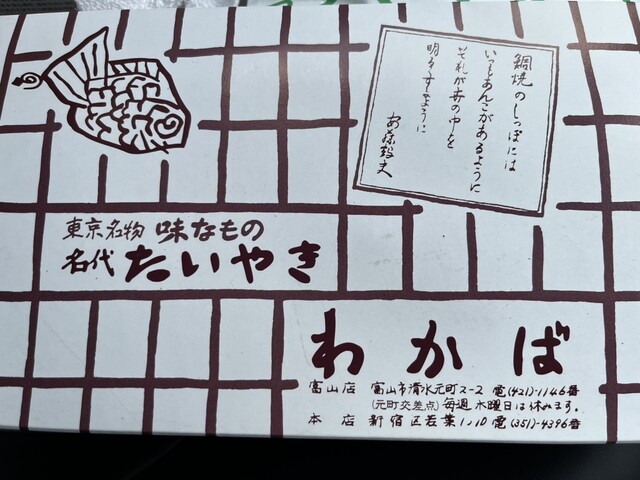 鯛焼のしっぽには
いつもあんこがあるように
それが世の中を
明るくするように
安藤鶴夫
東京名物 味なもの
名代 たいやき
わかば
富山店 富山市清水元町2-2 電(421)-1146番
(元町交差点) 毎週水曜日は休みます。
本店 新宿区若葉1ノ10 電(351)-4396番